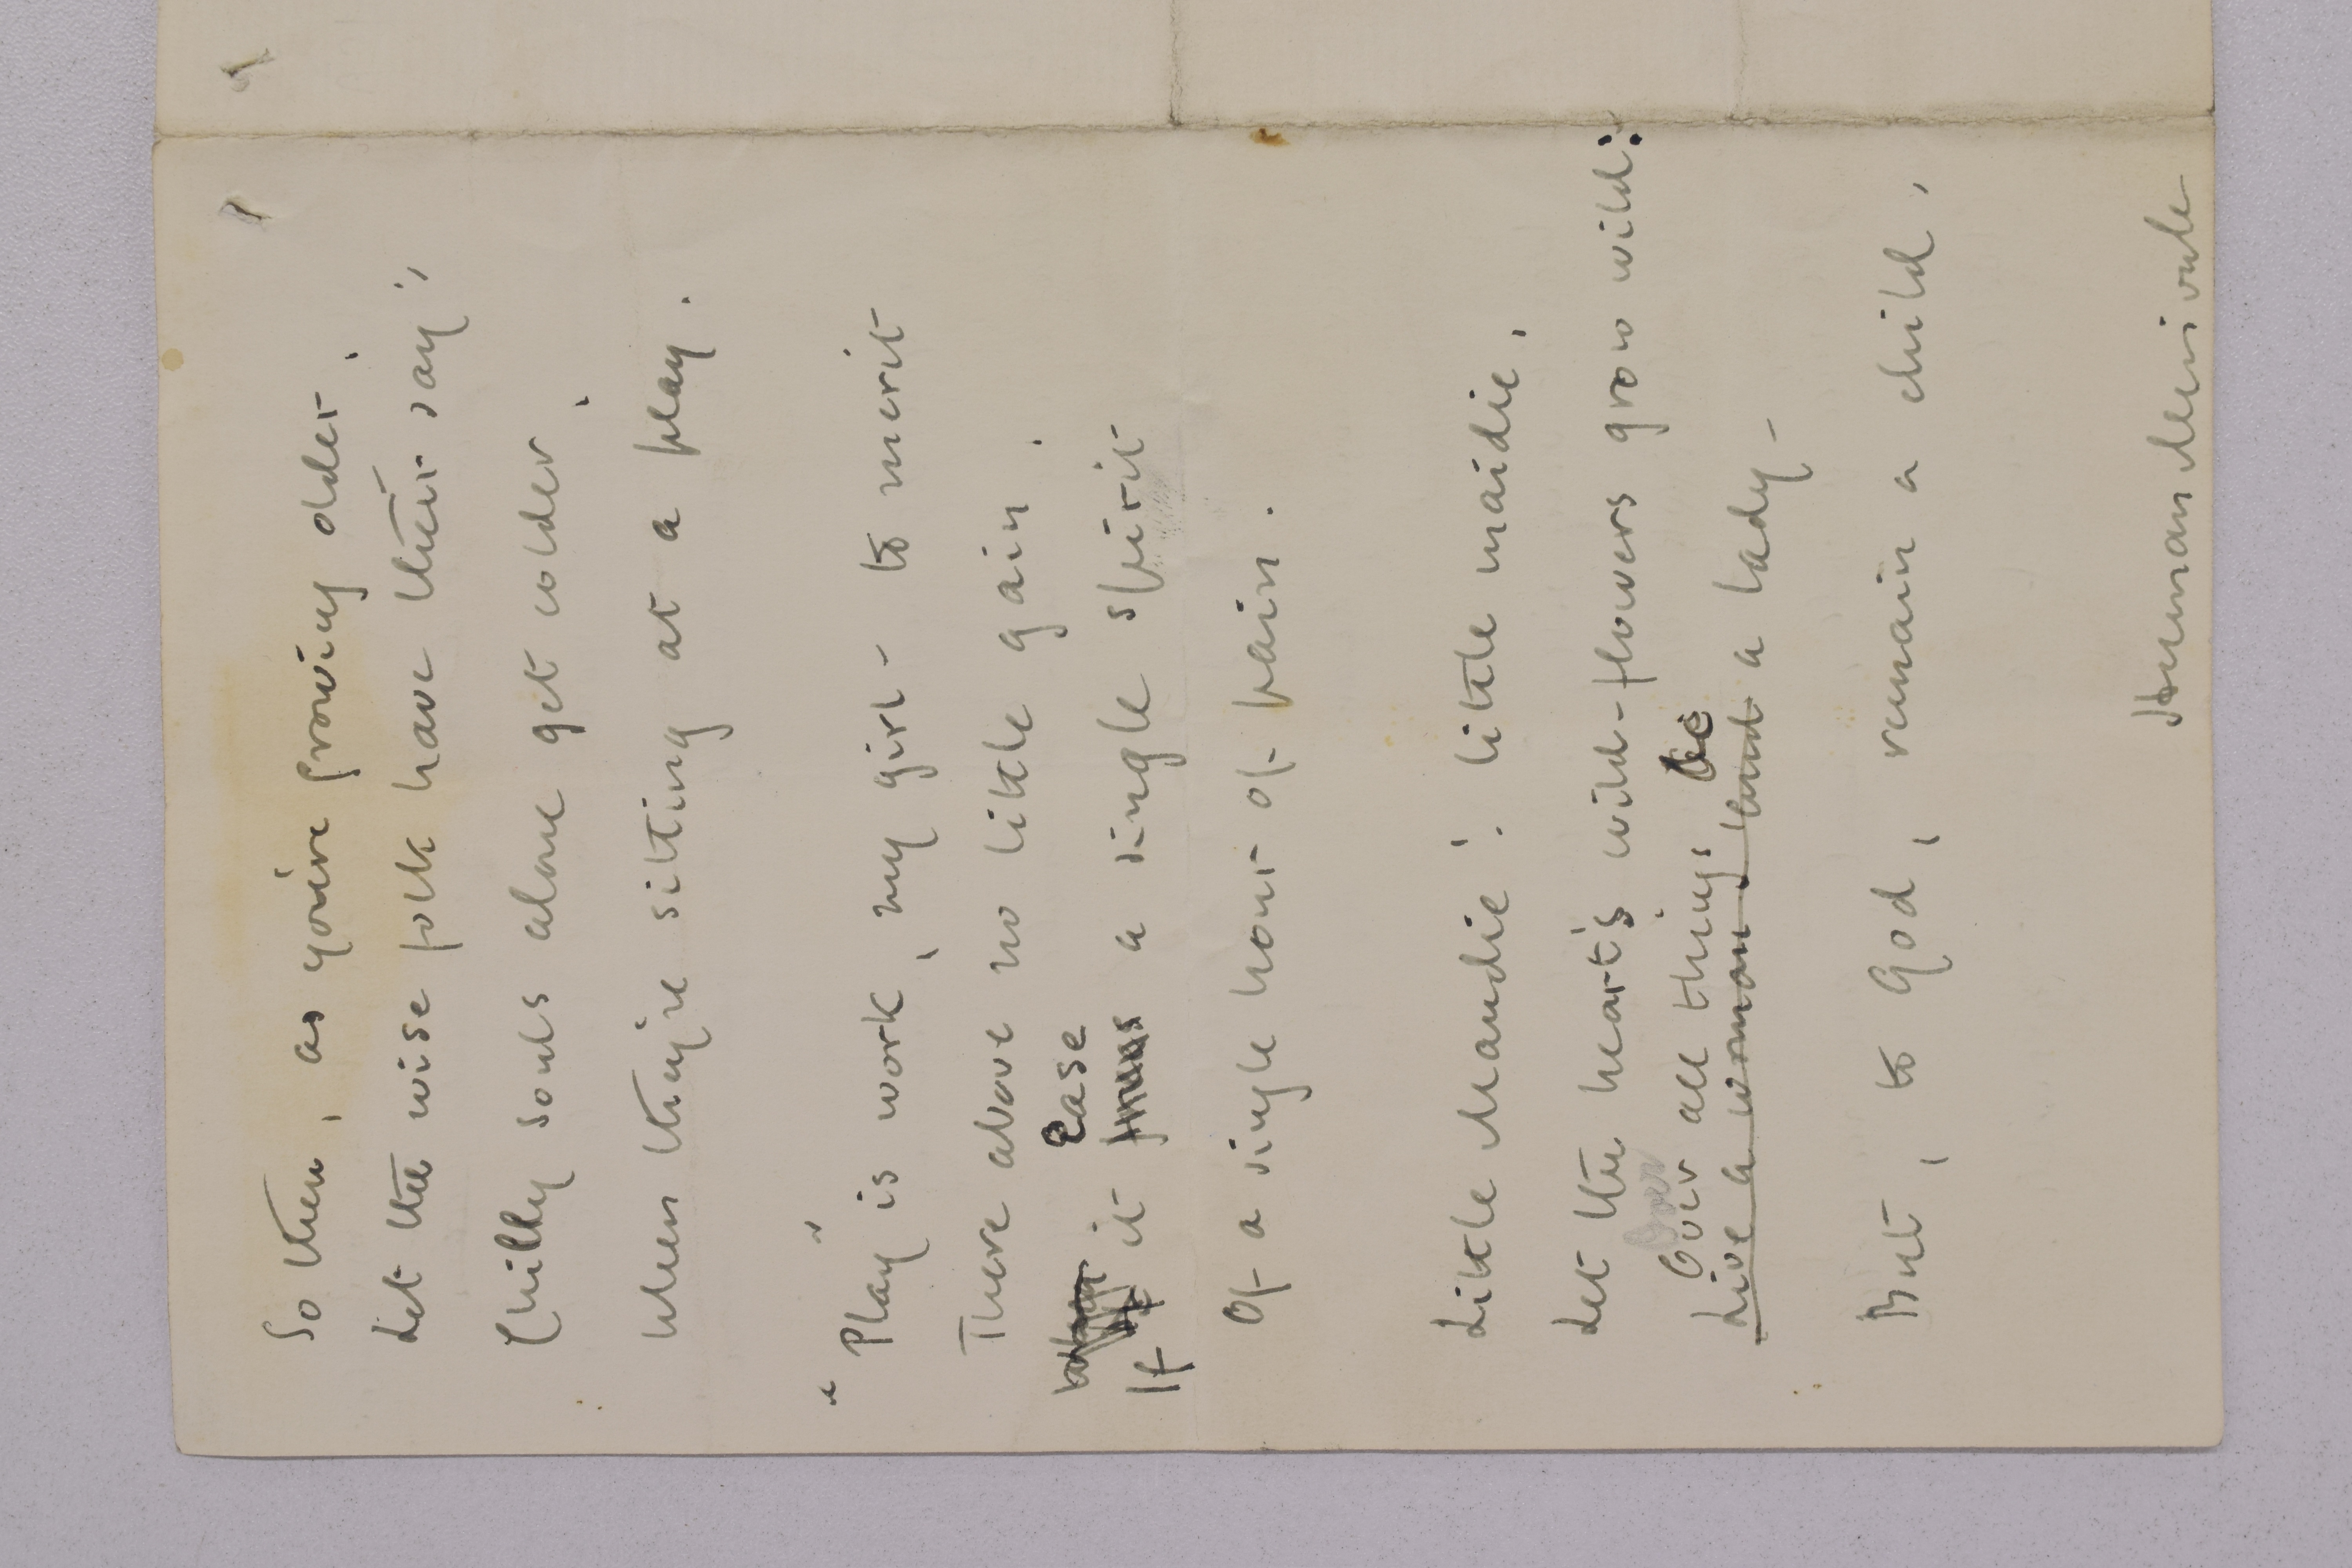 So then, as you're growing older,
Let the wise folk have their say;
Chilly souls alone get colder,
When they're sitting at a play.
"Play" is work, my girl - to merit
There above no little gain,
Ease
If it frees a single spirit
Of a single hour of pain.
Little Maudie! little maidie,
Let the heart's wild-flowers grow wild:
Over all things be
Live a woman, and a lady -
But, to God, remain a child,
Herman Merivale